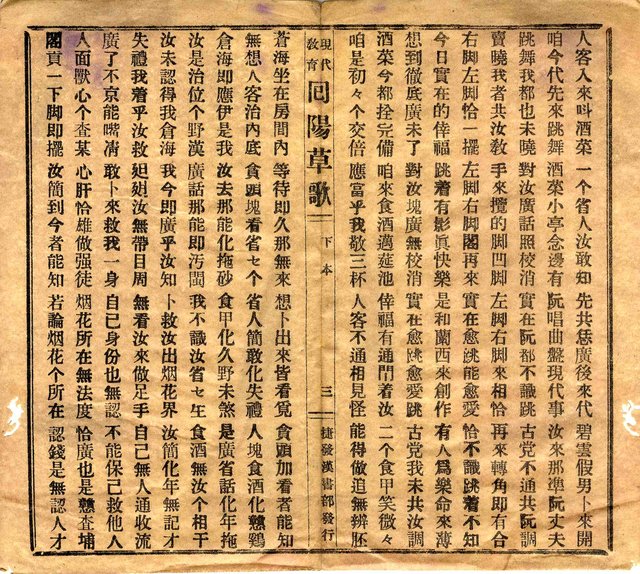 人客入來叫酒菜 一个省人汝敢知 先共恁廣後來代 碧雲假男卜來開
咱今代先來跳舞 酒菜小亭念邊有 阮唱曲盤現代事 汝來那準阮丈夫
跳舞我都也未曉 對汝廣話照校消 實在阮都不識跳 古党不通共阮調
賣曉我者共汝敎 手來攬的脚凹脚 左脚右脚來相恰 再來轉角即有合
右脚左脚恰一擺 左脚右脚閣再來 實在愈跳能愈愛 恰不識跳着不知
今日實在的倖福 跳着有影眞快樂 是和蘭西來創作 有人爲樂命來薄
想到徹底廣未了 對汝塊廣無校消 實在愈跳愈愛跳 古党我未共汝調
酒菜今都拴完備 咱來食酒邁莚池 倖福有通鬥着汝 二个食甲笑微々
咱是初々个交倍 應富乎我敬三杯 人客不通相見怪 能得做追無辨胚
現代敎育 回陽草歌 下本 三 捷發漢書部發行
蒼海坐在房間內 等待即久那無來 想卜出來皆看覓 貪頭加看者能知
無想人客治內底 貪頭塊看省セ个 省人簡敢化失禮 人塊食酒化戇鷄
倉海即應伊是我 汝去那能化拖砂 食甲化久野未煞 是廣省話化年拖
汝是治位个野漢 廣話那能即汚 我不識汝省セ 食酒無汝个相干
汝未認得我倉海 我今即廣乎汝知 卜救汝出烟花界 汝簡化年無記才
失禮我着乎汝救 妲妲汝無帶日周 無看汝來做足手 自己無人通收流
廣了不京能嘴凊 敢卜來救我一身 自己身份也無認 不能保己救他人
人面獸心个查某 心肝恰雄做强徒 烟花所在無法度 恰廣也是戇查埔
閣貢一下脚即擺 汝簡到今者能知 若論烟花个所在 認錢是無認人才